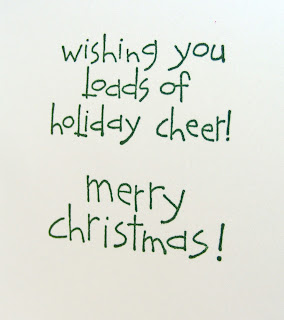 wishing you
loads of
holiday cheer!
merry
christmas!